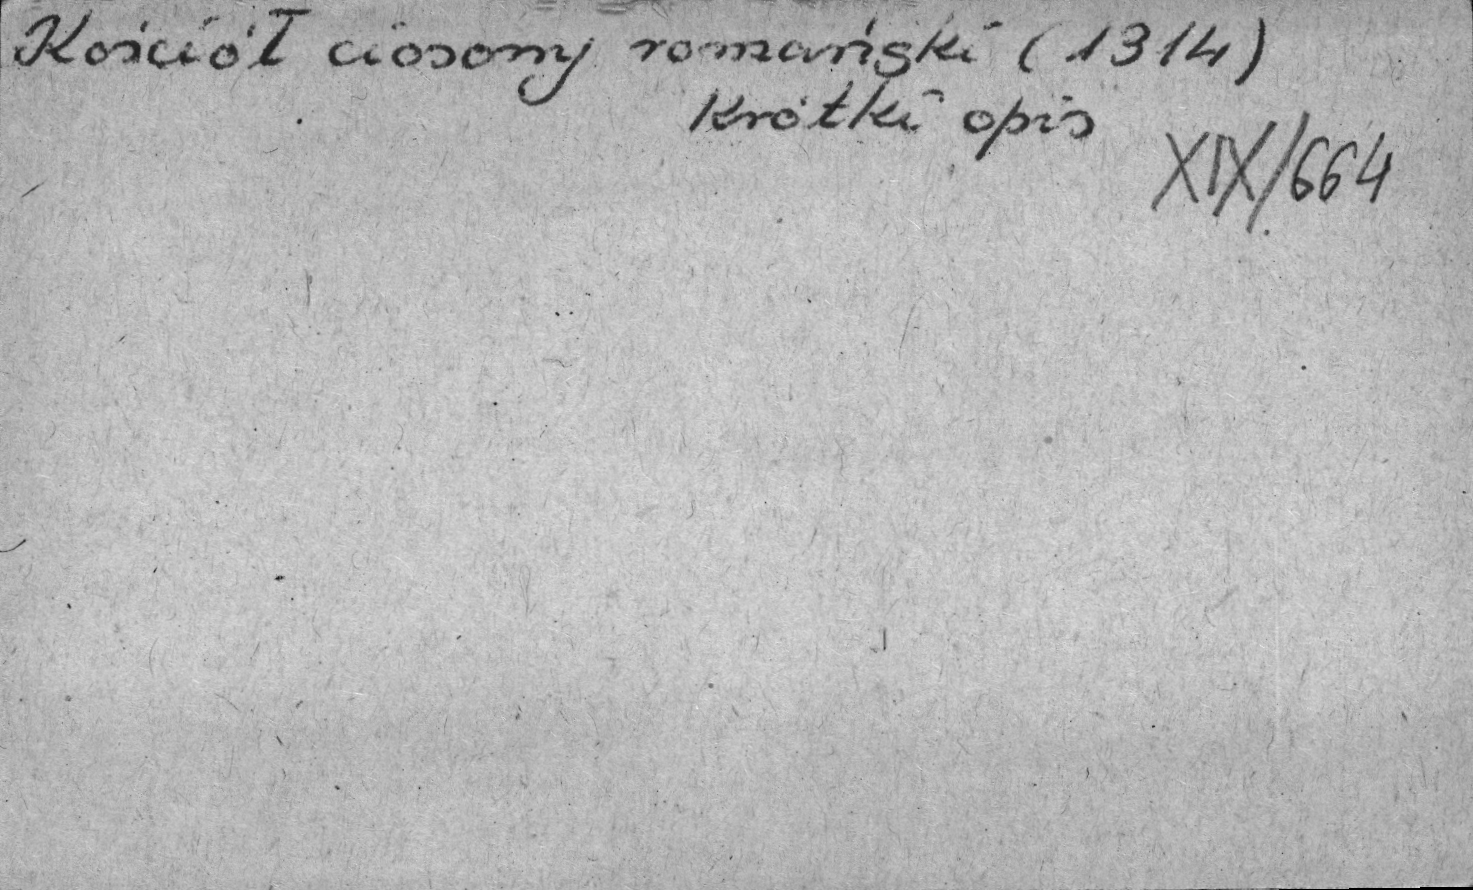 Kościół ciosany romański (1314)
Krótki opis
XIX/664